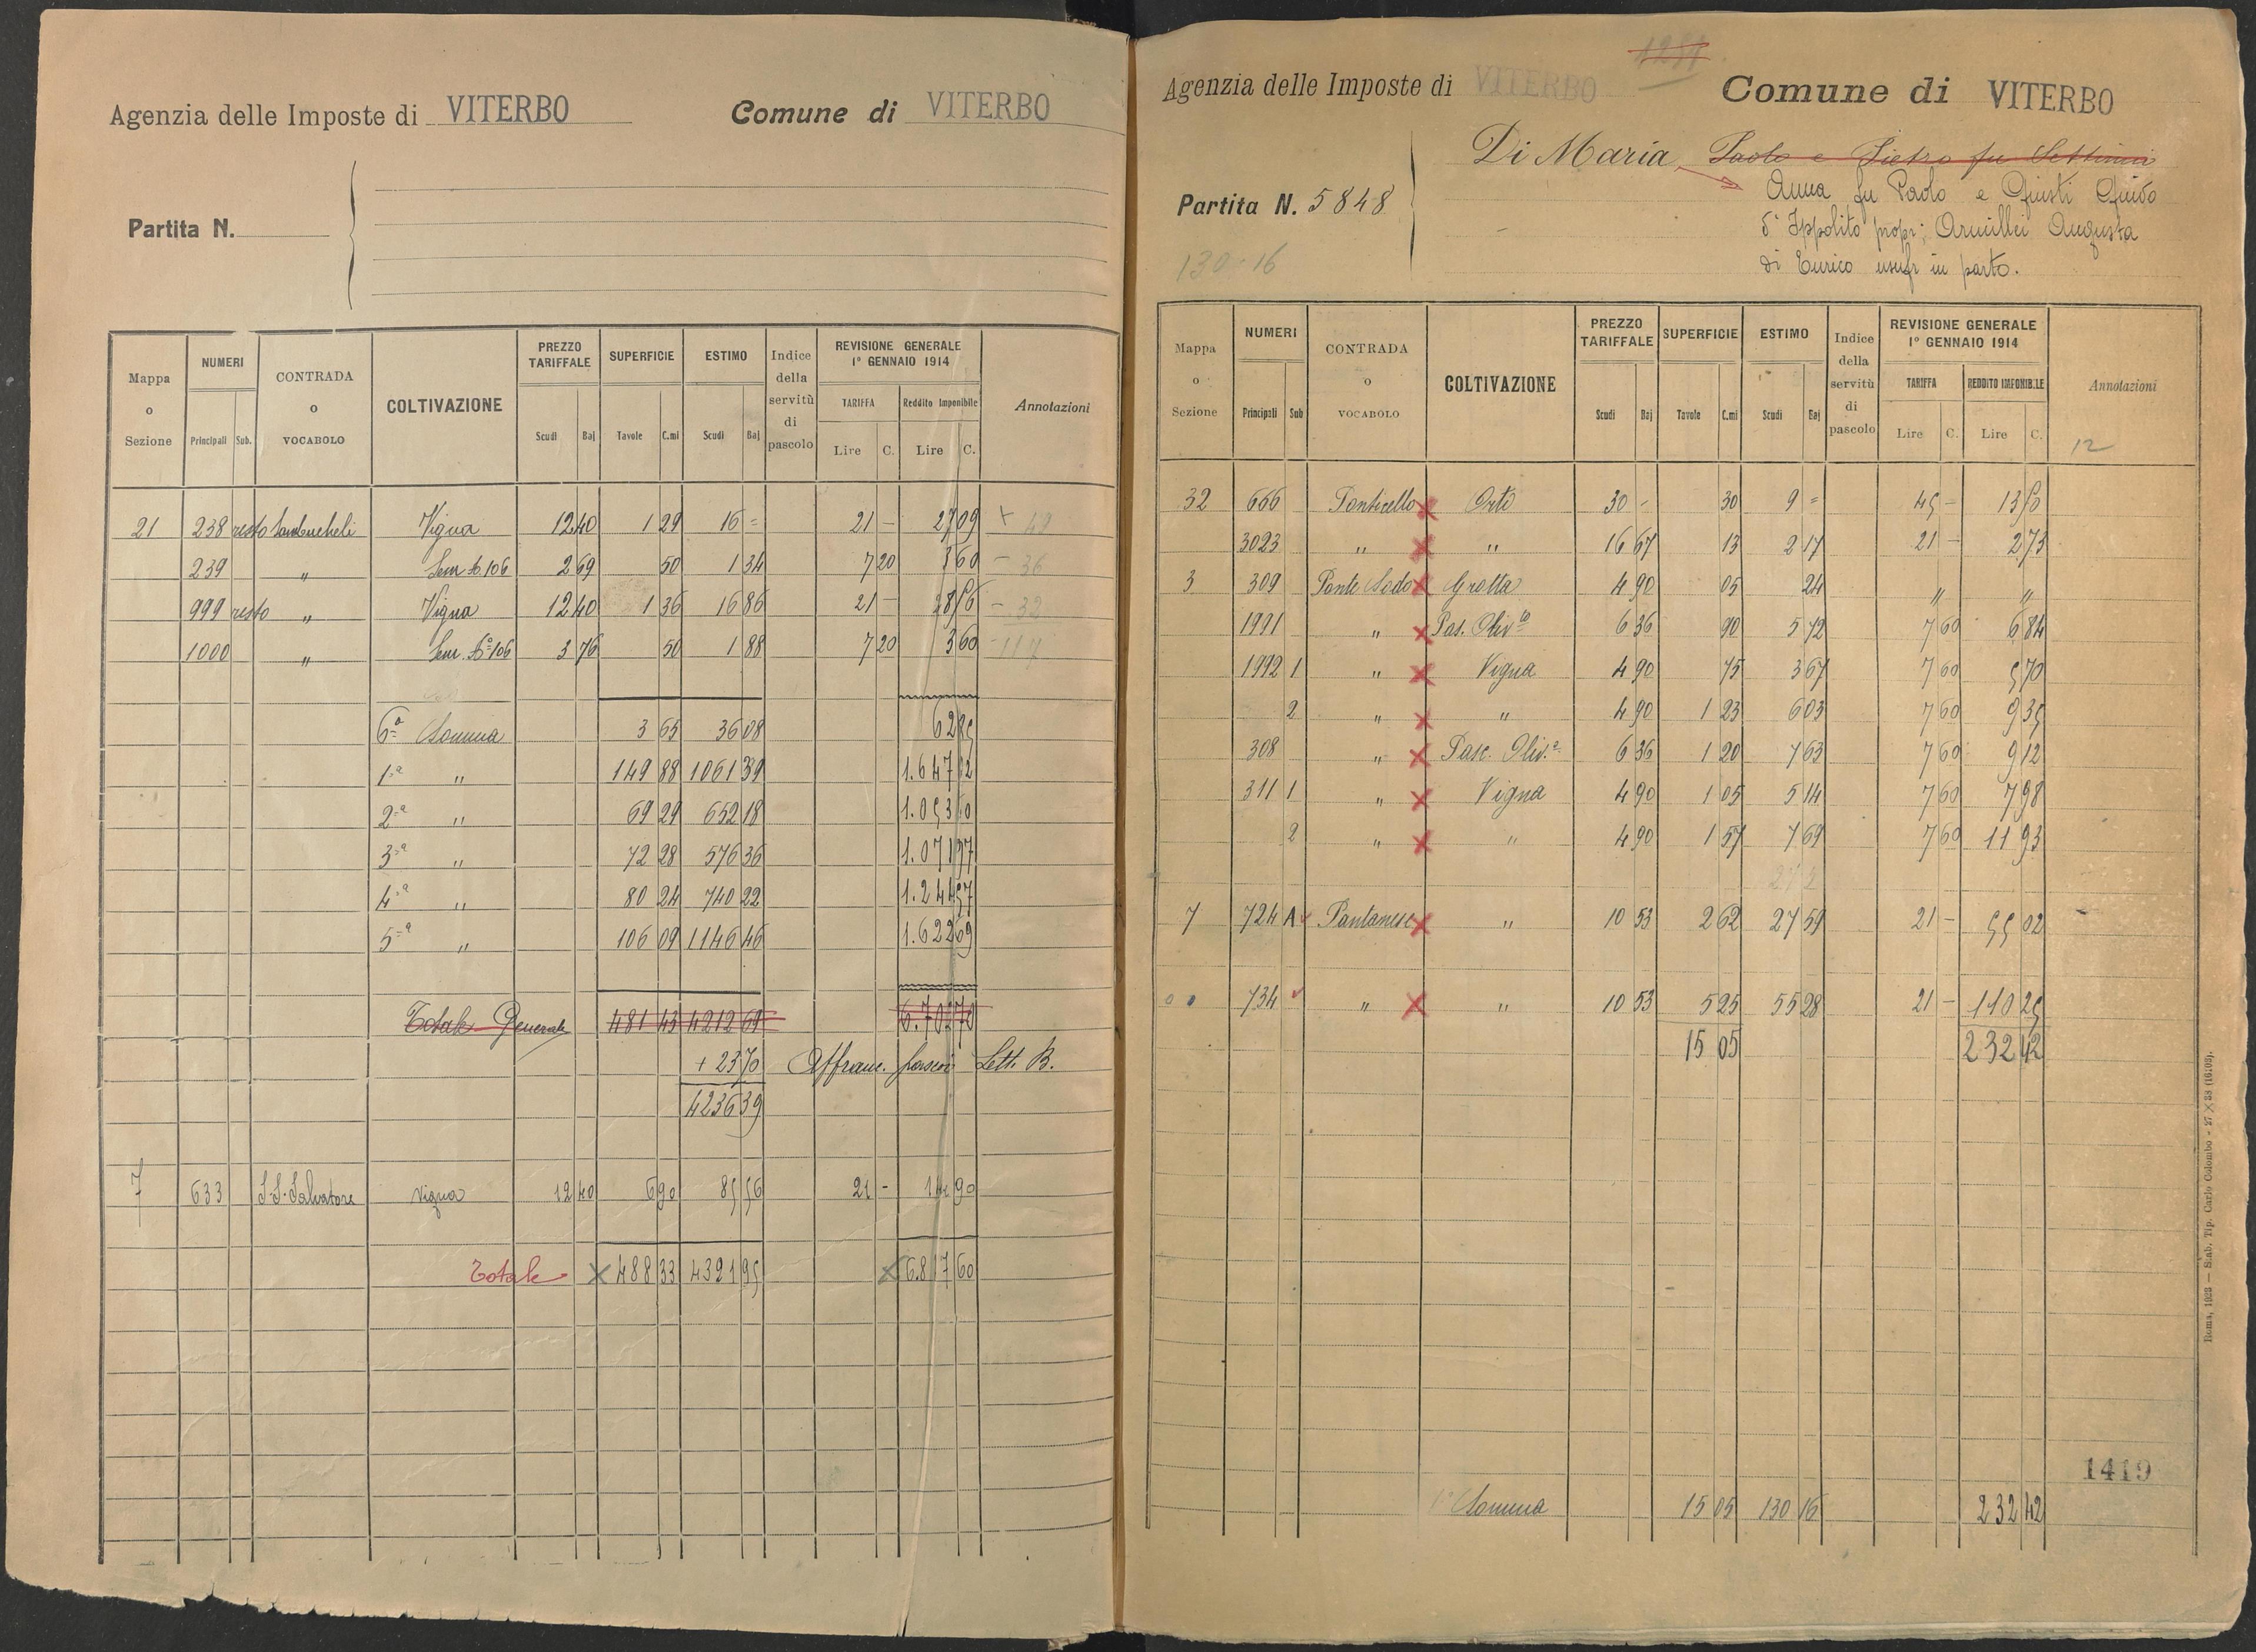 Agenzia delle Imposte di VITERBO Comune di VITERBO
Partita N.
Mappa o Sezione NUMERI CONTRADA o VOCABOLO COLTIVAZIONE PREZZO TARIFFALE SUPERFICIE ESTIMO Indice della servitù di pascolo REVISIONE GENERALE 1° GENNAIO 1914 Annotazioni
TARIFFA Reddito Imponibile
Principali Sub. Scudi Baj Tavole C.mi Scudi Baj Lire C. Lire C.
21 238 resto Vigna 12 40 1 29 16 = 21 - 27 09
239 " Sem A. 106 2 69 50 1 34 7 20 3 60 - 36
999 resto " Vigna 12 40 1 36 16 86 21 - 28 56 - 32
1000 " Sem. A° 106 3 76 50 1 88 7 20 3 60
6ª Somma 3 65 36 08 62 85
1ª " 149 88 1061 39 1.647 12
2ª " 69 29 652 18 1.053 60
3ª " 72 28 576 36 1.071 97
4ª " 80 24 740 22 1.244 57
5ª " 106 09 1146 46 1.622 69
Totale Generale 481 43 4212 69 6.702 70
+ 23 70 Affranc. Lett. B.
4236 39
7 633 S.S. Salvatore Vigna 12 40 6 90 85 56 21 - 144 90
Totale 488 33 4321 95 6.847 60
Agenzia delle Imposte di VITERBO Comune di VITERBO
Di Maria Paolo e Pietro fu Settimio
Anna fu Paolo e Giusti Guido
Partita N. 5848
d'Ippolito propr; Armillei Augusta
di Enrico usufr in parto.
130-16
Mappa o Sezione NUMERI CONTRADA o VOCABOLO COLTIVAZIONE PREZZO TARIFFALE SUPERFICIE ESTIMO Indice della servitù di pascolo REVISIONE GENERALE 1° GENNAIO 1914 Annotazioni
TARIFFA REDDITO IMPONIBILE
Principali Sub Scudi Baj Tavole C.mi Scudi Baj Lire C. Lire C.
12
32 666 Ponticello x Orto 30 - 30 9 = 45 - 13 50
3023 " x " 16 67 13 2 17 21 - 2 73
3 309 Ponte Sodo x Grotta 4 90 05 24 " "
1991 " x Pas. Oliv.to 6 36 90 5 72 7 60 6 84
1992 1 " x Vigna 4 90 75 3 67 7 60 5 70
2 " x " 4 90 1 23 6 03 7 60 9 35
308 " x Pasc. Oliv.º 6 36 1 20 7 63 7 60 9 12
311 1 " x Vigna 4 90 1 05 5 14 7 60 7 98
2 " x " 4 90 1 57 7 69 7 60 11 93
7 724 A Pantanese x " 10 53 2 62 27 59 21 - 55 02
734 " x " 10 53 5 25 55 28 21 - 110 25
15 05 232 42
1419
1ª Somma 15 05 130 16 232 42
Roma, 1923 — Stab. Tip. Carlo Colombo - 27 X 38